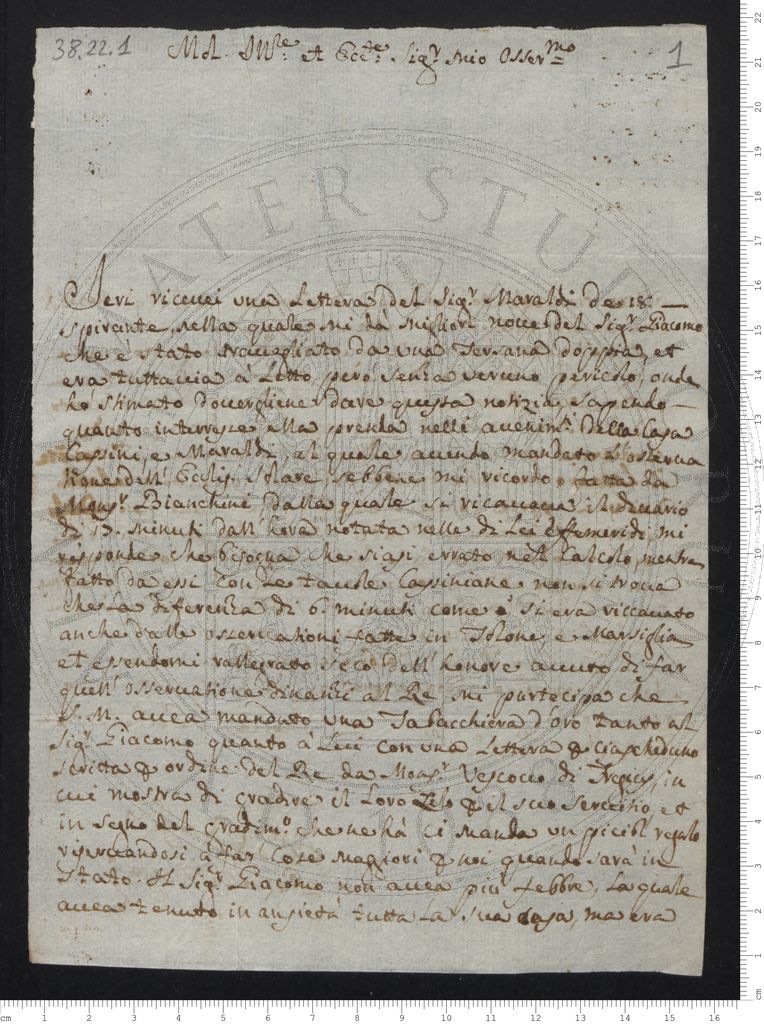 38.22.1
1
Mol. Ill.re et Ecc.te Sig.r mio Osser.mo
Jeri riceuei una Lettera del Sig.r Maraldi de 18
spirante, nella quale mi dà migliori noue del Sig.r Giacomo
che è stato trauagliato da una Tersana doppia, et
era tuttauia à Letto però senza veruno pericolo, onde
hò stimato douergliene dare questa notizia, sapendo
quanto interesse ella prenda nelli auenim.ti della Casa
Cassini, e Maraldi, al quale auendo mandato l'osserua
tione dell'Ecclip. solare sebbene mi ricordo fatta da
Mons.r Bianchini, dalla quale si ricauaua il diuario
di 13. minuti dall'hora notata nelle di Lei Effemeridi, mi
risponde che bisogna che siasi errato nel Calcolo, mentre
fatto da essi con Le tauole Cassiniane non si troua
che La diferenza di 6. minuti come si era riccauato
anche dalle osseruationi fatte in Tolone e Marsiglia
et essendomi rallegrato seco dell'honore auuto di far
quell'Osseruatione dinanzi al Re mi partecipa che
S. M. auea mandato una Tabacchiera d'oro tanto al
Sig.r Giacomo quanto à Lui con una Lettera ꝑ ciascheduno
scritta ꝑ ordine del Re da Mons.r Vescouo di Frejus, in
cui mostra di gradire il Loro Zelo ꝑ il suo seruitio, et
in segno del gradim.o che ne hà ci manda un picciol regalo
riseruandosi à far cose maggiori ꝑ noi quando sarà in
stato. Il Sig.r Giacomo non auea più febbre, La quale
auea tenuto in ansietà tutta La sua casa, ma era